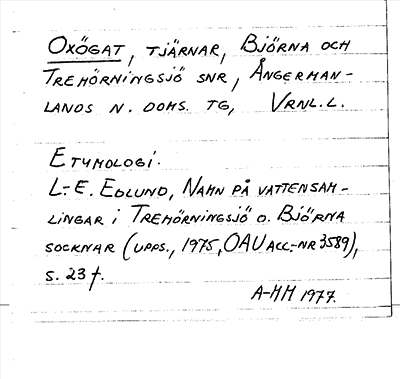 Oxögat, tjärnar, Björna och
Trehörningsjö snr, Ångerman-
lands n. doms. tg, Vrnl. l.
Etymologi.
L.-E. Edlund, Namn på vattensam-
lingar i Trehörningsjö o. Björna
socknar (upps., 1975, OAU acc.-nr 3589),
s. 23 f.
A-MM 1977.